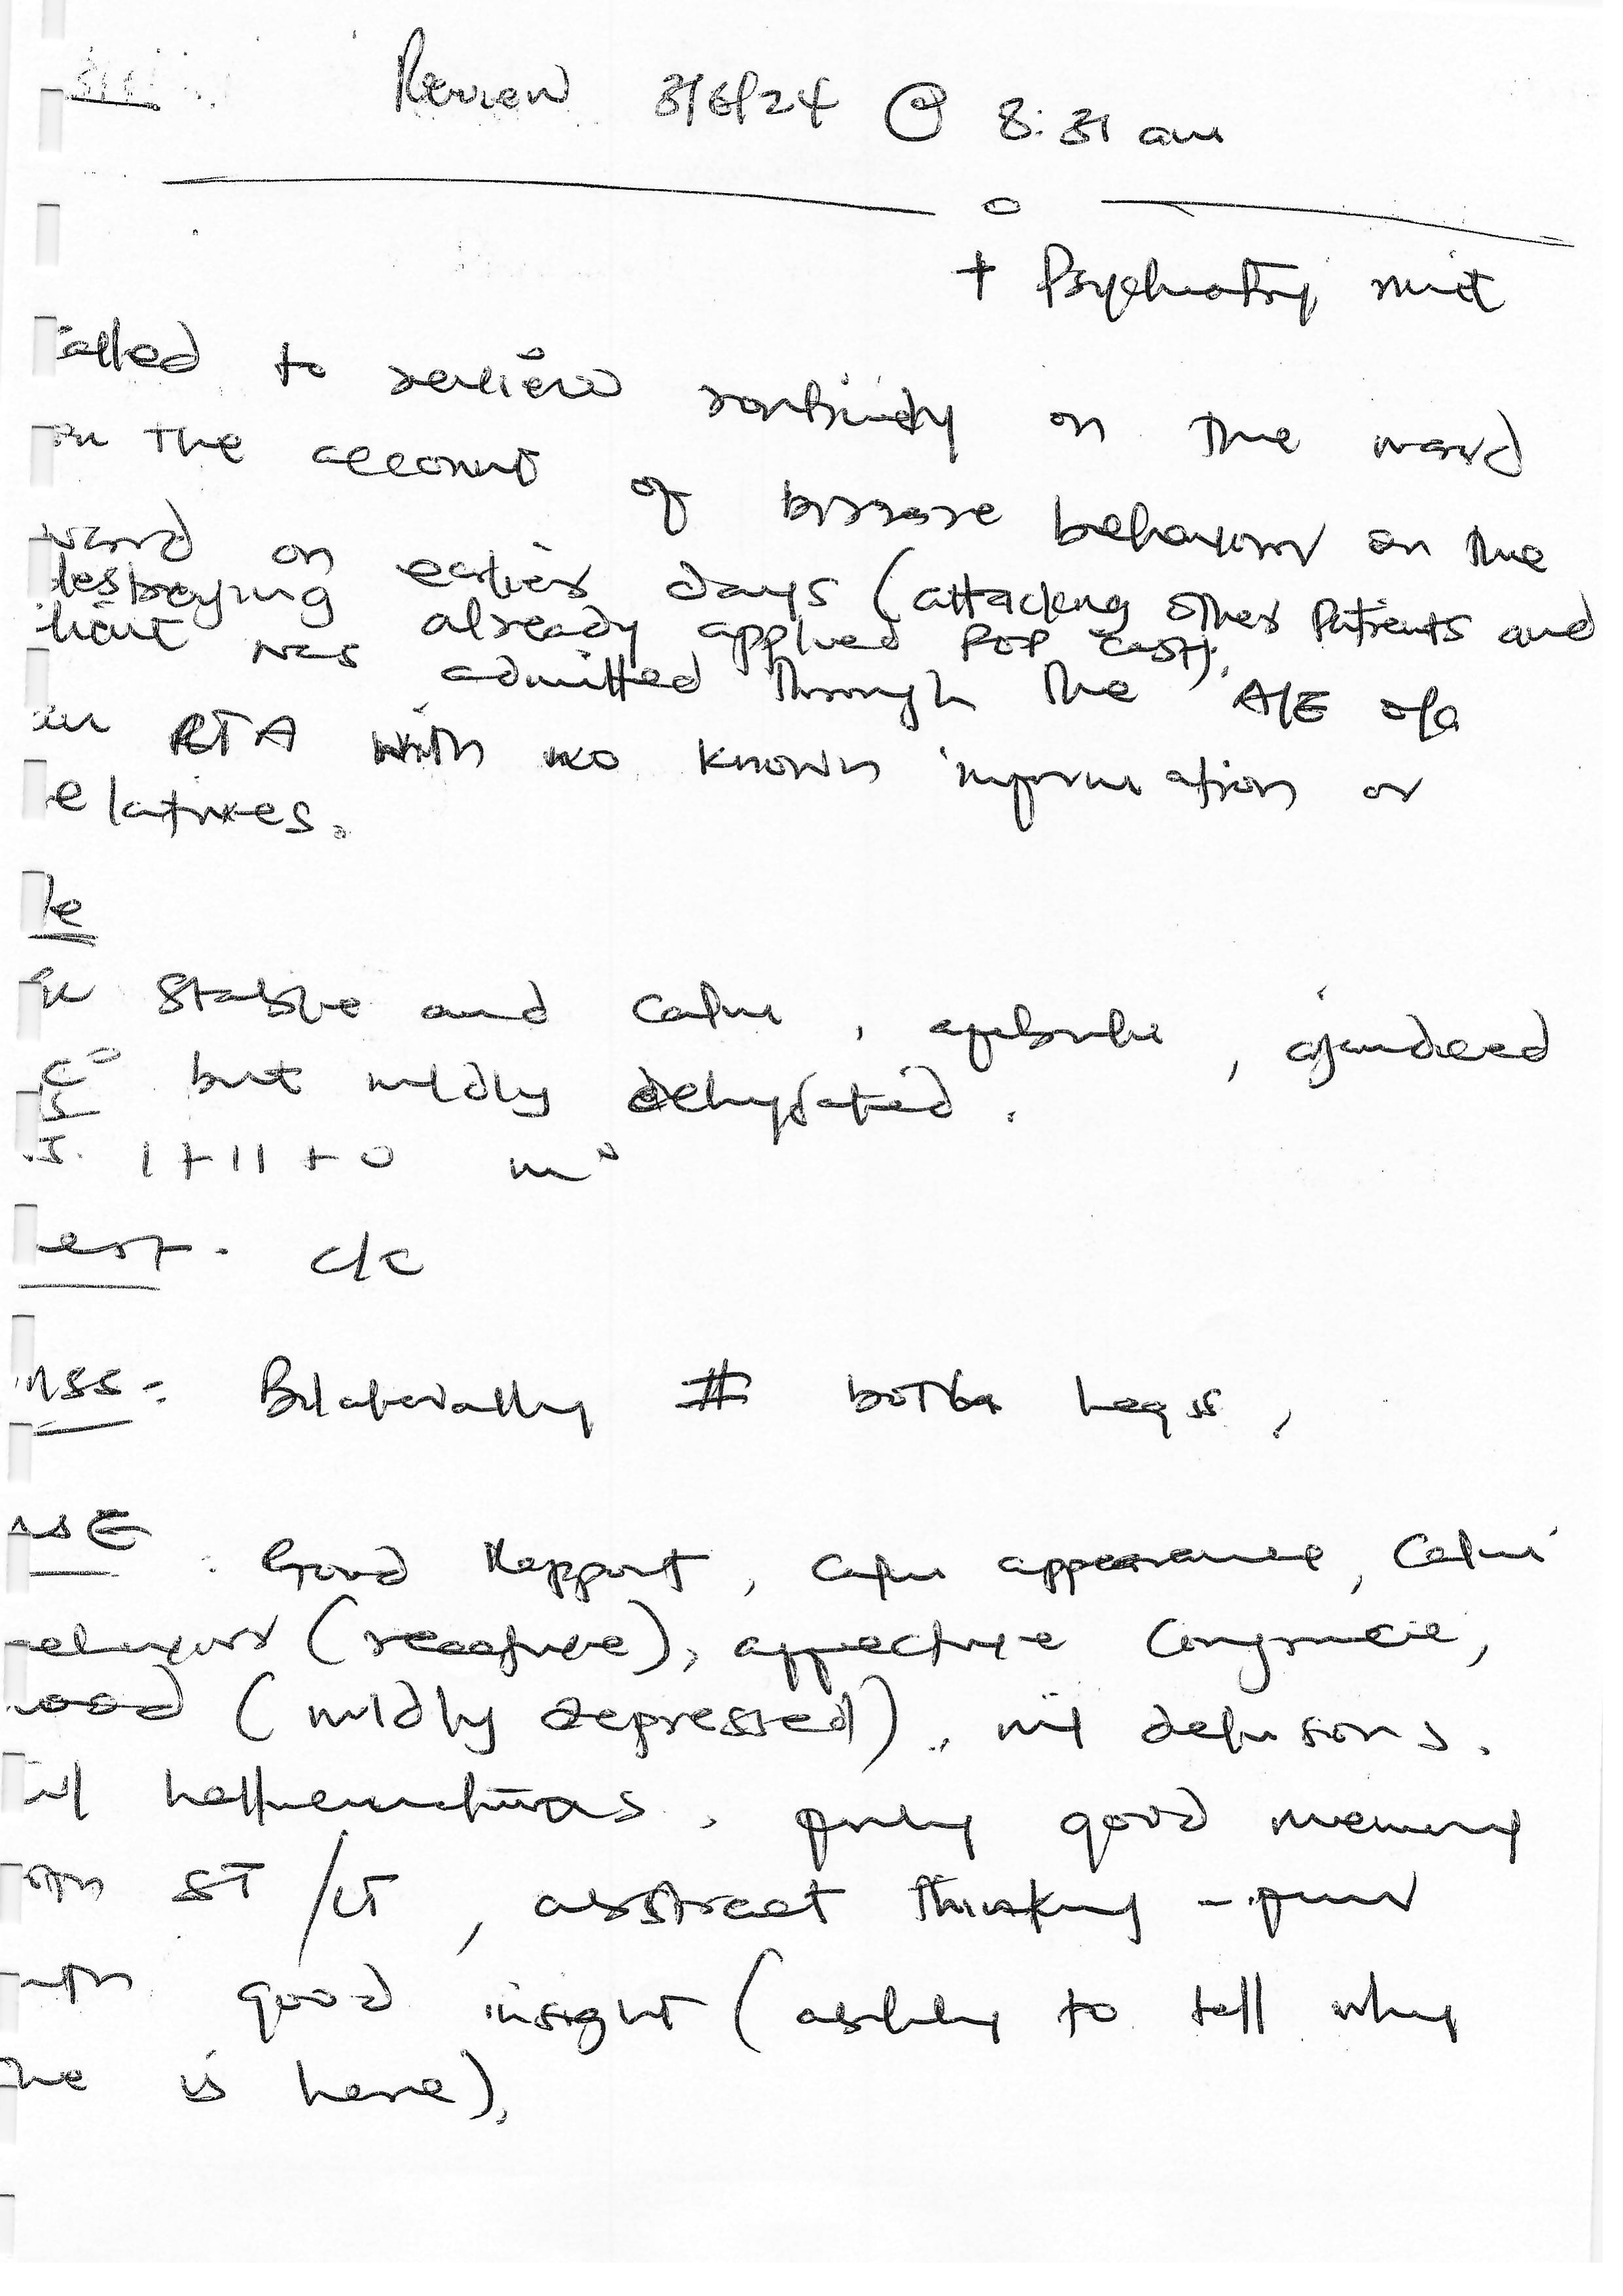 Review 3/6/24 @ 8:31 am
+ Psychiatry unit
alled to review routinely on the ward
on the account of bizzare behaviour on the
ward on earlier days (attacking other patients and
destroying already applied POP cast).
tient was admitted through the A/E o/a
an RTA with no known information or
elatives.
/e
stable and calm, afebrile, ajaundiced
c° but mildly dehydrated.
.S. I + II + 0 m°
est. c/c
MSS: Bilaterally # both legs,
MSE: Good Rapport, calm appearance, calm
behaviour (receptive), affective congruence,
mood (mildly depressed), nil delusions.
nil hallucinations, fairly good memory
both ST/LT, abstract thinking - poor
with good insight (ability to tell why
he is here).